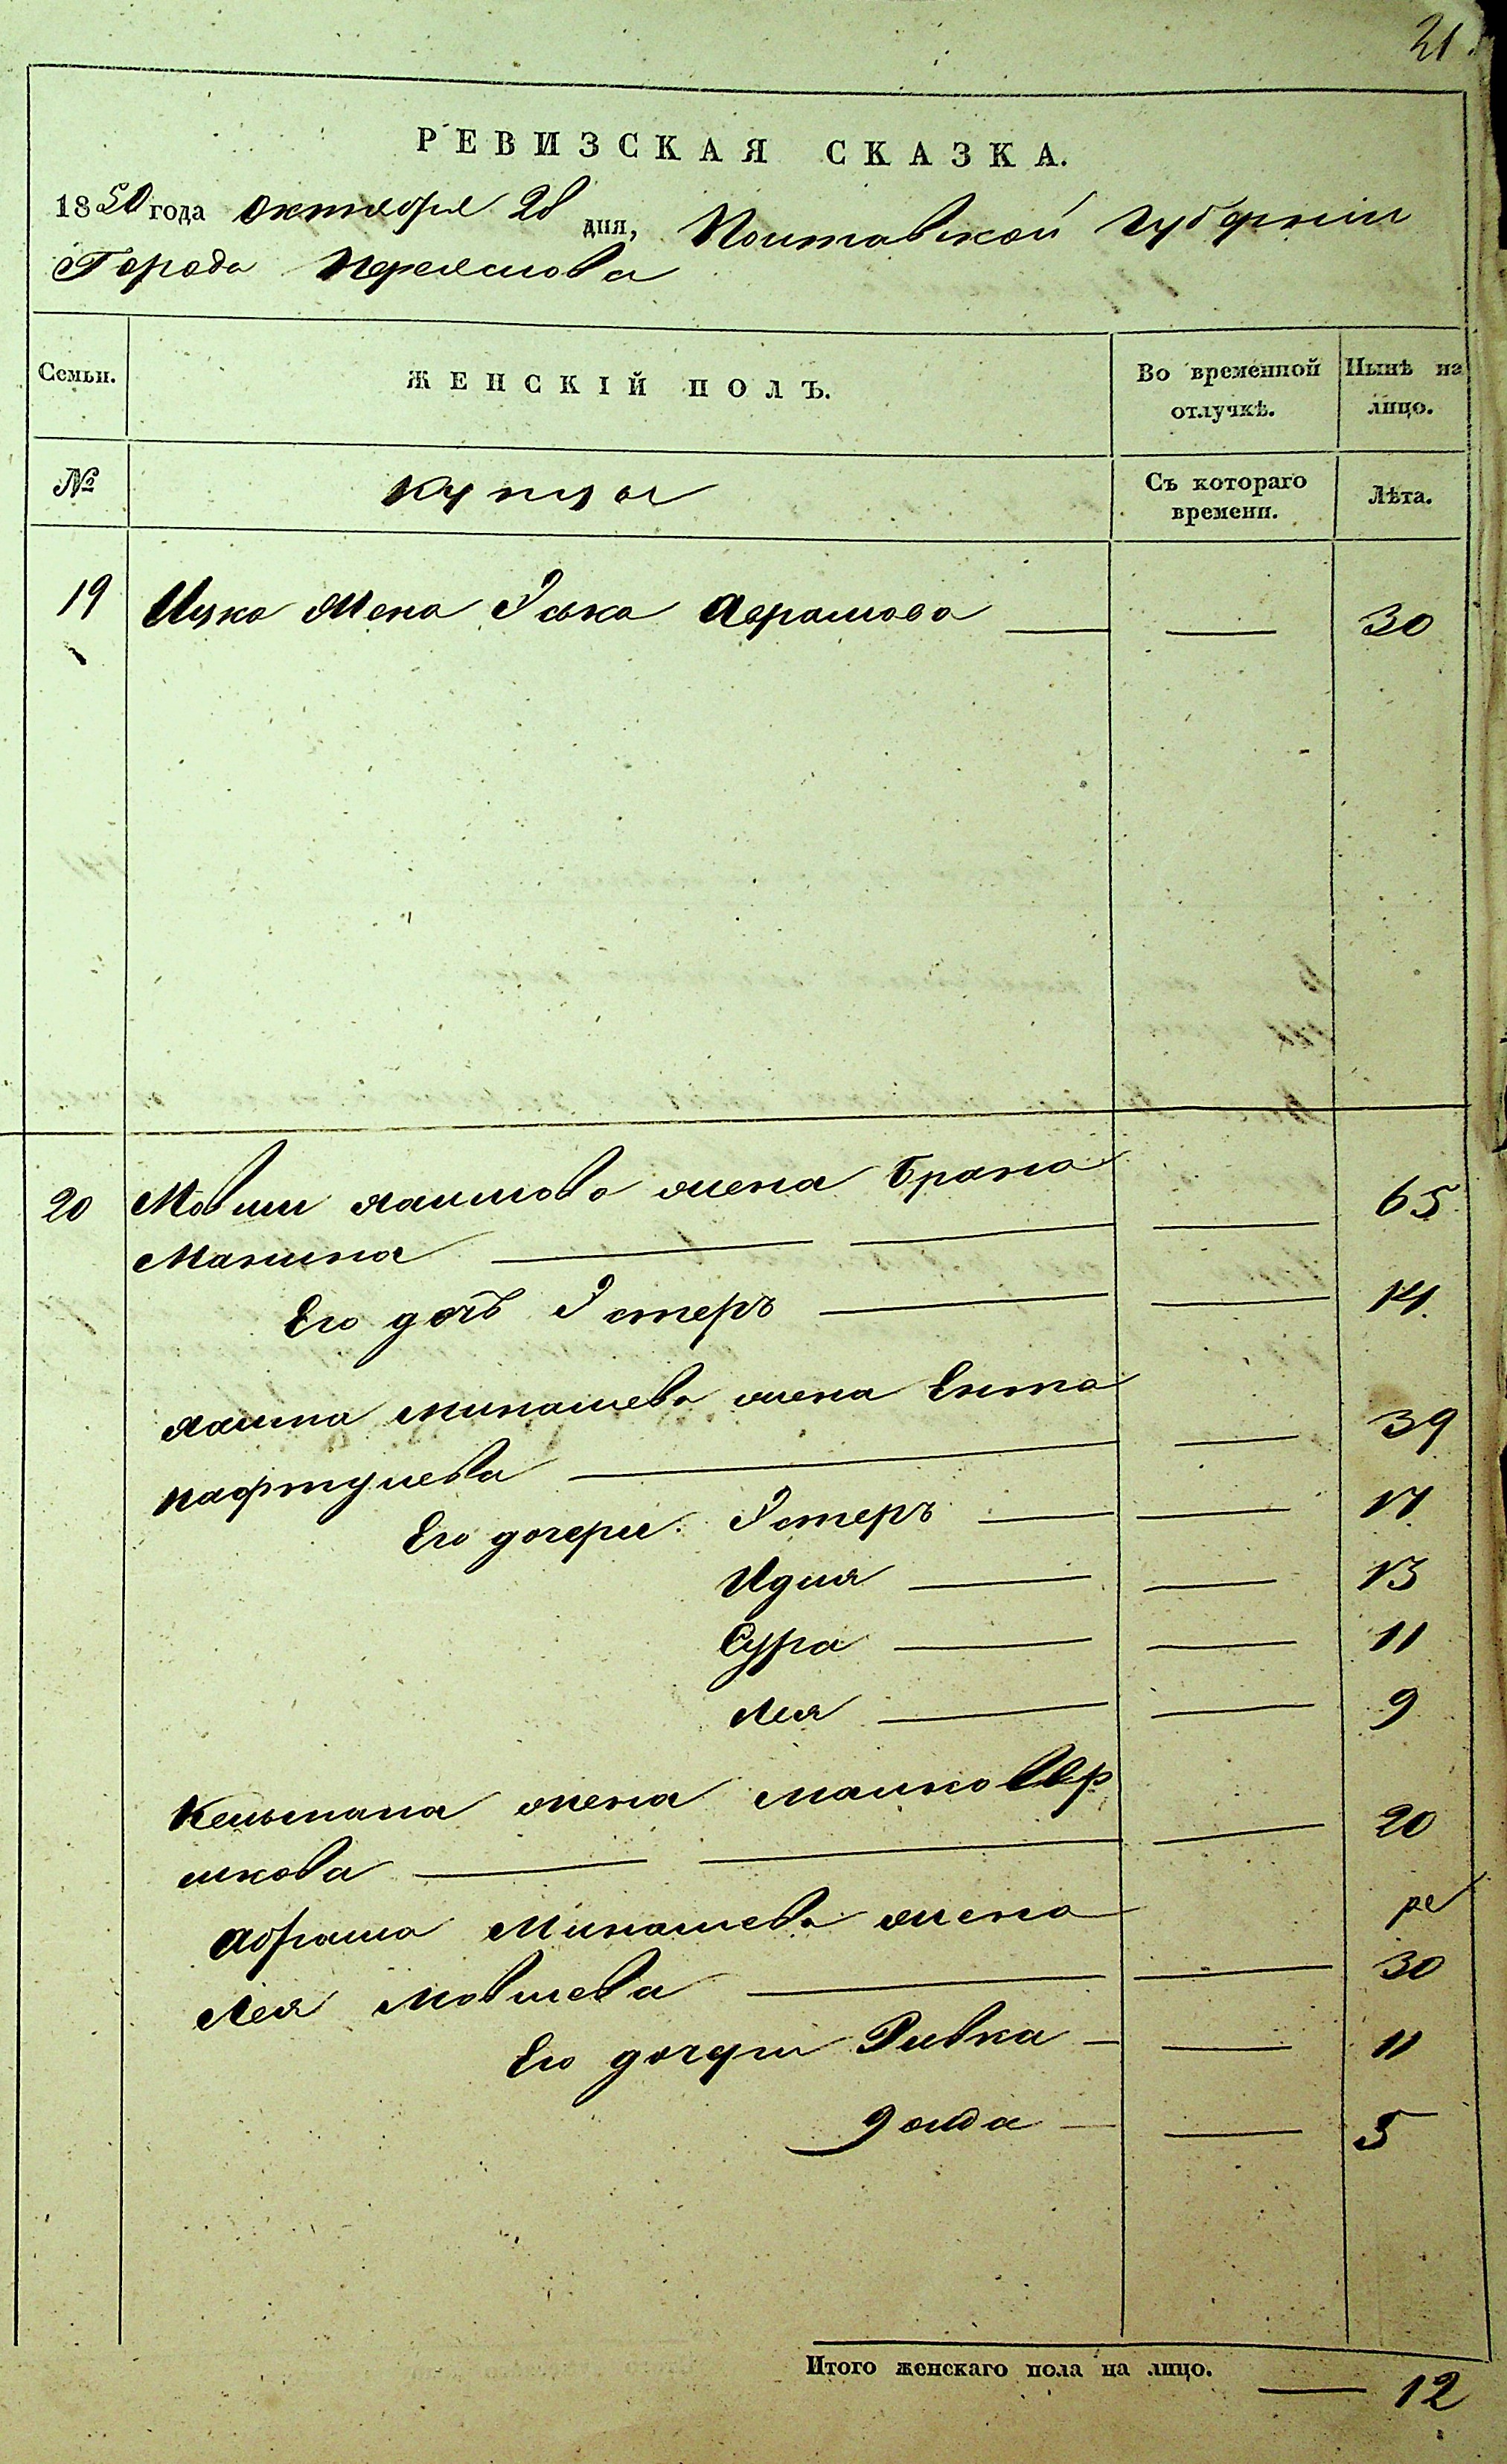 21.
РЕВИЗСКАЯ СКАЗКА.
1850 года Октября 28 дня, Полтавской Губерніи
Города Переяслова
Семьи. ЖЕНСКІЙ ПОЛЪ. Во временной отлучкѣ. Нынѣ на лицо.
№ Купцы Съ котораго времени. Лѣта.
19 Ицка жена Эська Аврамова — — 30
20 Мовши жена Брана 65
Манина — — —
Его дочь Эстеръ — — 14
жена Ента 39
Нафтулева — —
Его дочери: Эстеръ — — 17
Идля — — 13
Сура — — 11
Лея — — 9
Кельмана жена 20
шкова — — —
Абрама Минашева жена
Лея Мовшева — — 30
Его дочери Ривка — — 11
— — 5
Итого женскаго пола на лицо. — 12